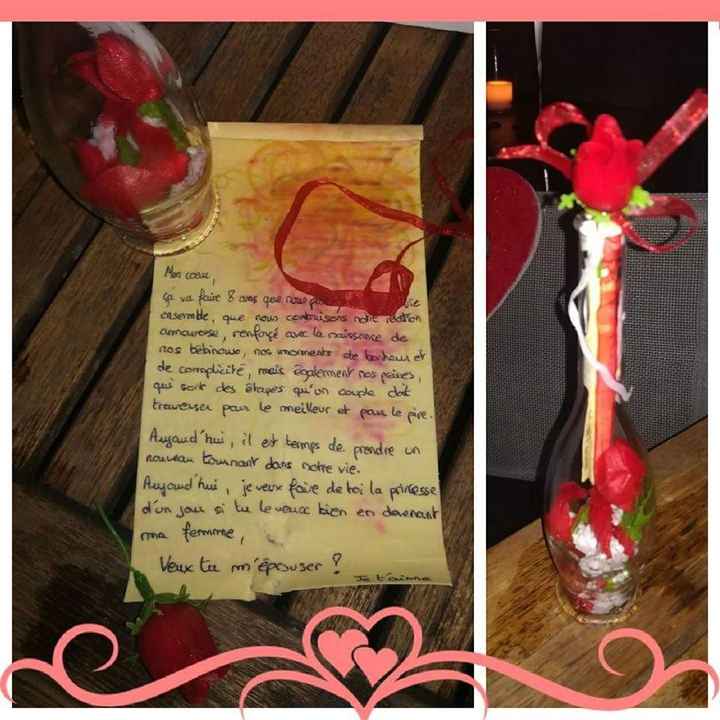 Mon cœur,
ça va faire 8 ans que nous vie
ensemble, que nous construisons notre relation
amoureuse, renforcé avec la naissance de
nos bébinous, nos moments de bonheur et
de complicité, mais également nos peines,
qui sont des étapes qu'un couple doit
traverser pour le meilleur et pour le pire.
Aujourd'hui, il est temps de prendre un
nouveau tournant dans notre vie.
Aujourd'hui, je veux faire de toi la princesse
d'un jour si tu le veux bien en devenant
ma femme,
Veux tu m'épouser ?
Je t'aime